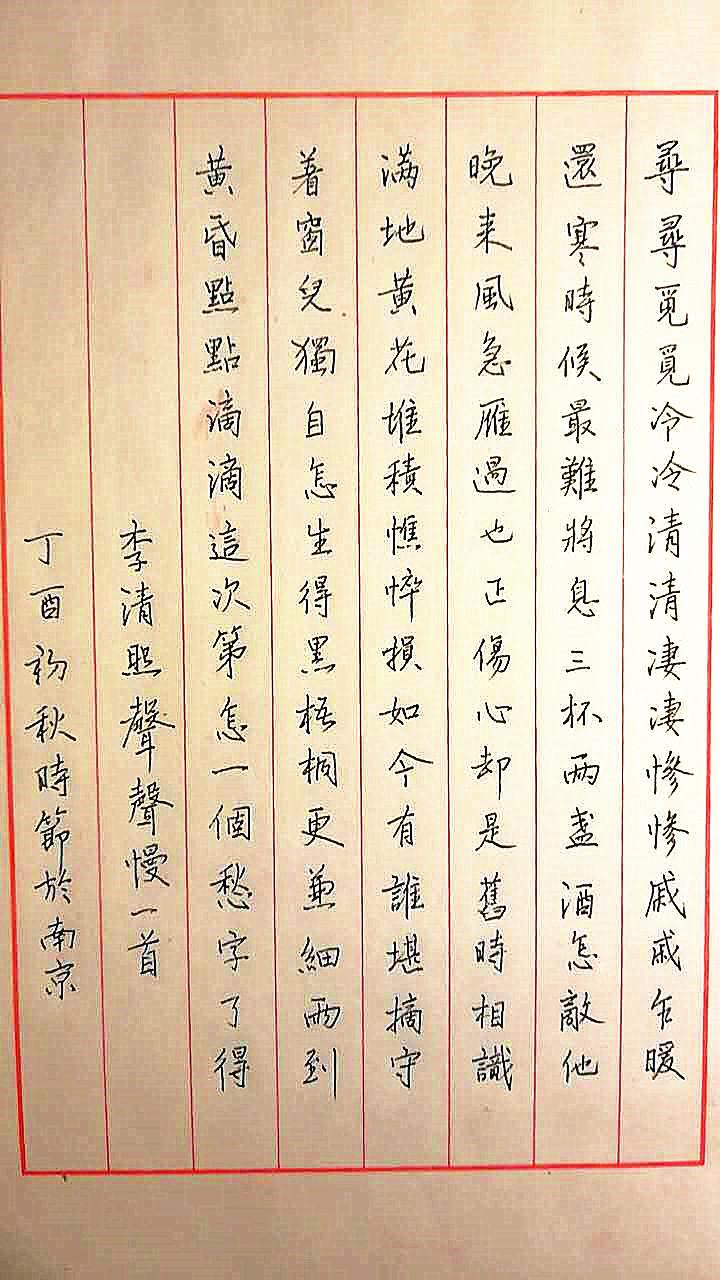 尋尋覓覓冷冷清清凄凄慘慘戚戚乍暖
還寒時候最難將息三杯兩盞酒怎敵他
晚来風急雁過也正傷心却是舊時相識
滿地黄花堆積憔悴損如今有誰堪摘守
着窗兒獨自怎生得黑梧桐更兼細雨到
黄昏點點滴滴這次第怎一個愁字了得
李清照聲聲慢一首
丁酉初秋時節於南京